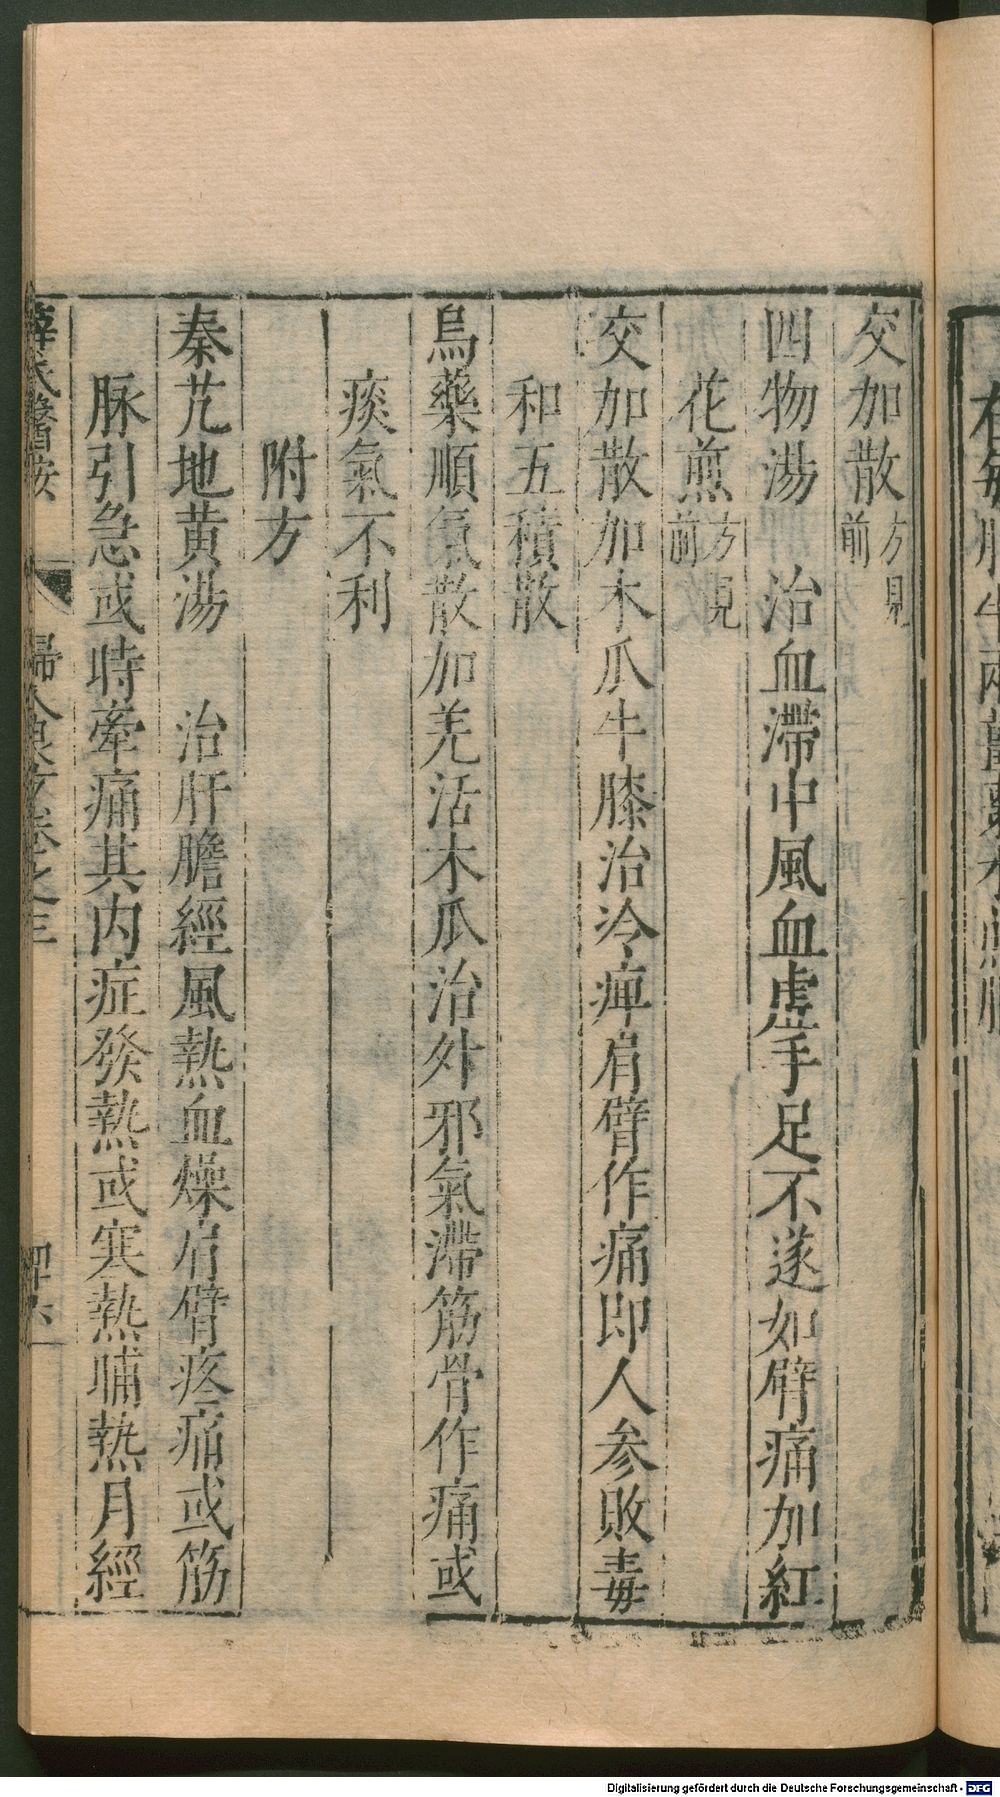 交加散方見前
四物湯　治血滯中風血虛手足不遂如臂痛加紅
花煎方見前
交加散加木瓜牛膝治冷痺肩臂作痛即人參敗毒
和五積散
烏藥順氣散加羌活木瓜治外邪氣滯筋骨作痛或
痰氣不利
附方
秦艽地黃湯　治肝膽經風熱血燥肩臂疼痛或筋
脉引急或時牽痛其内症發熱或寒熱晡熱月經
薛氏醫按　婦人良方卷之三
Digitalisierung gefördert durch die Deutsche Forschungsgemeinschaft - DFG